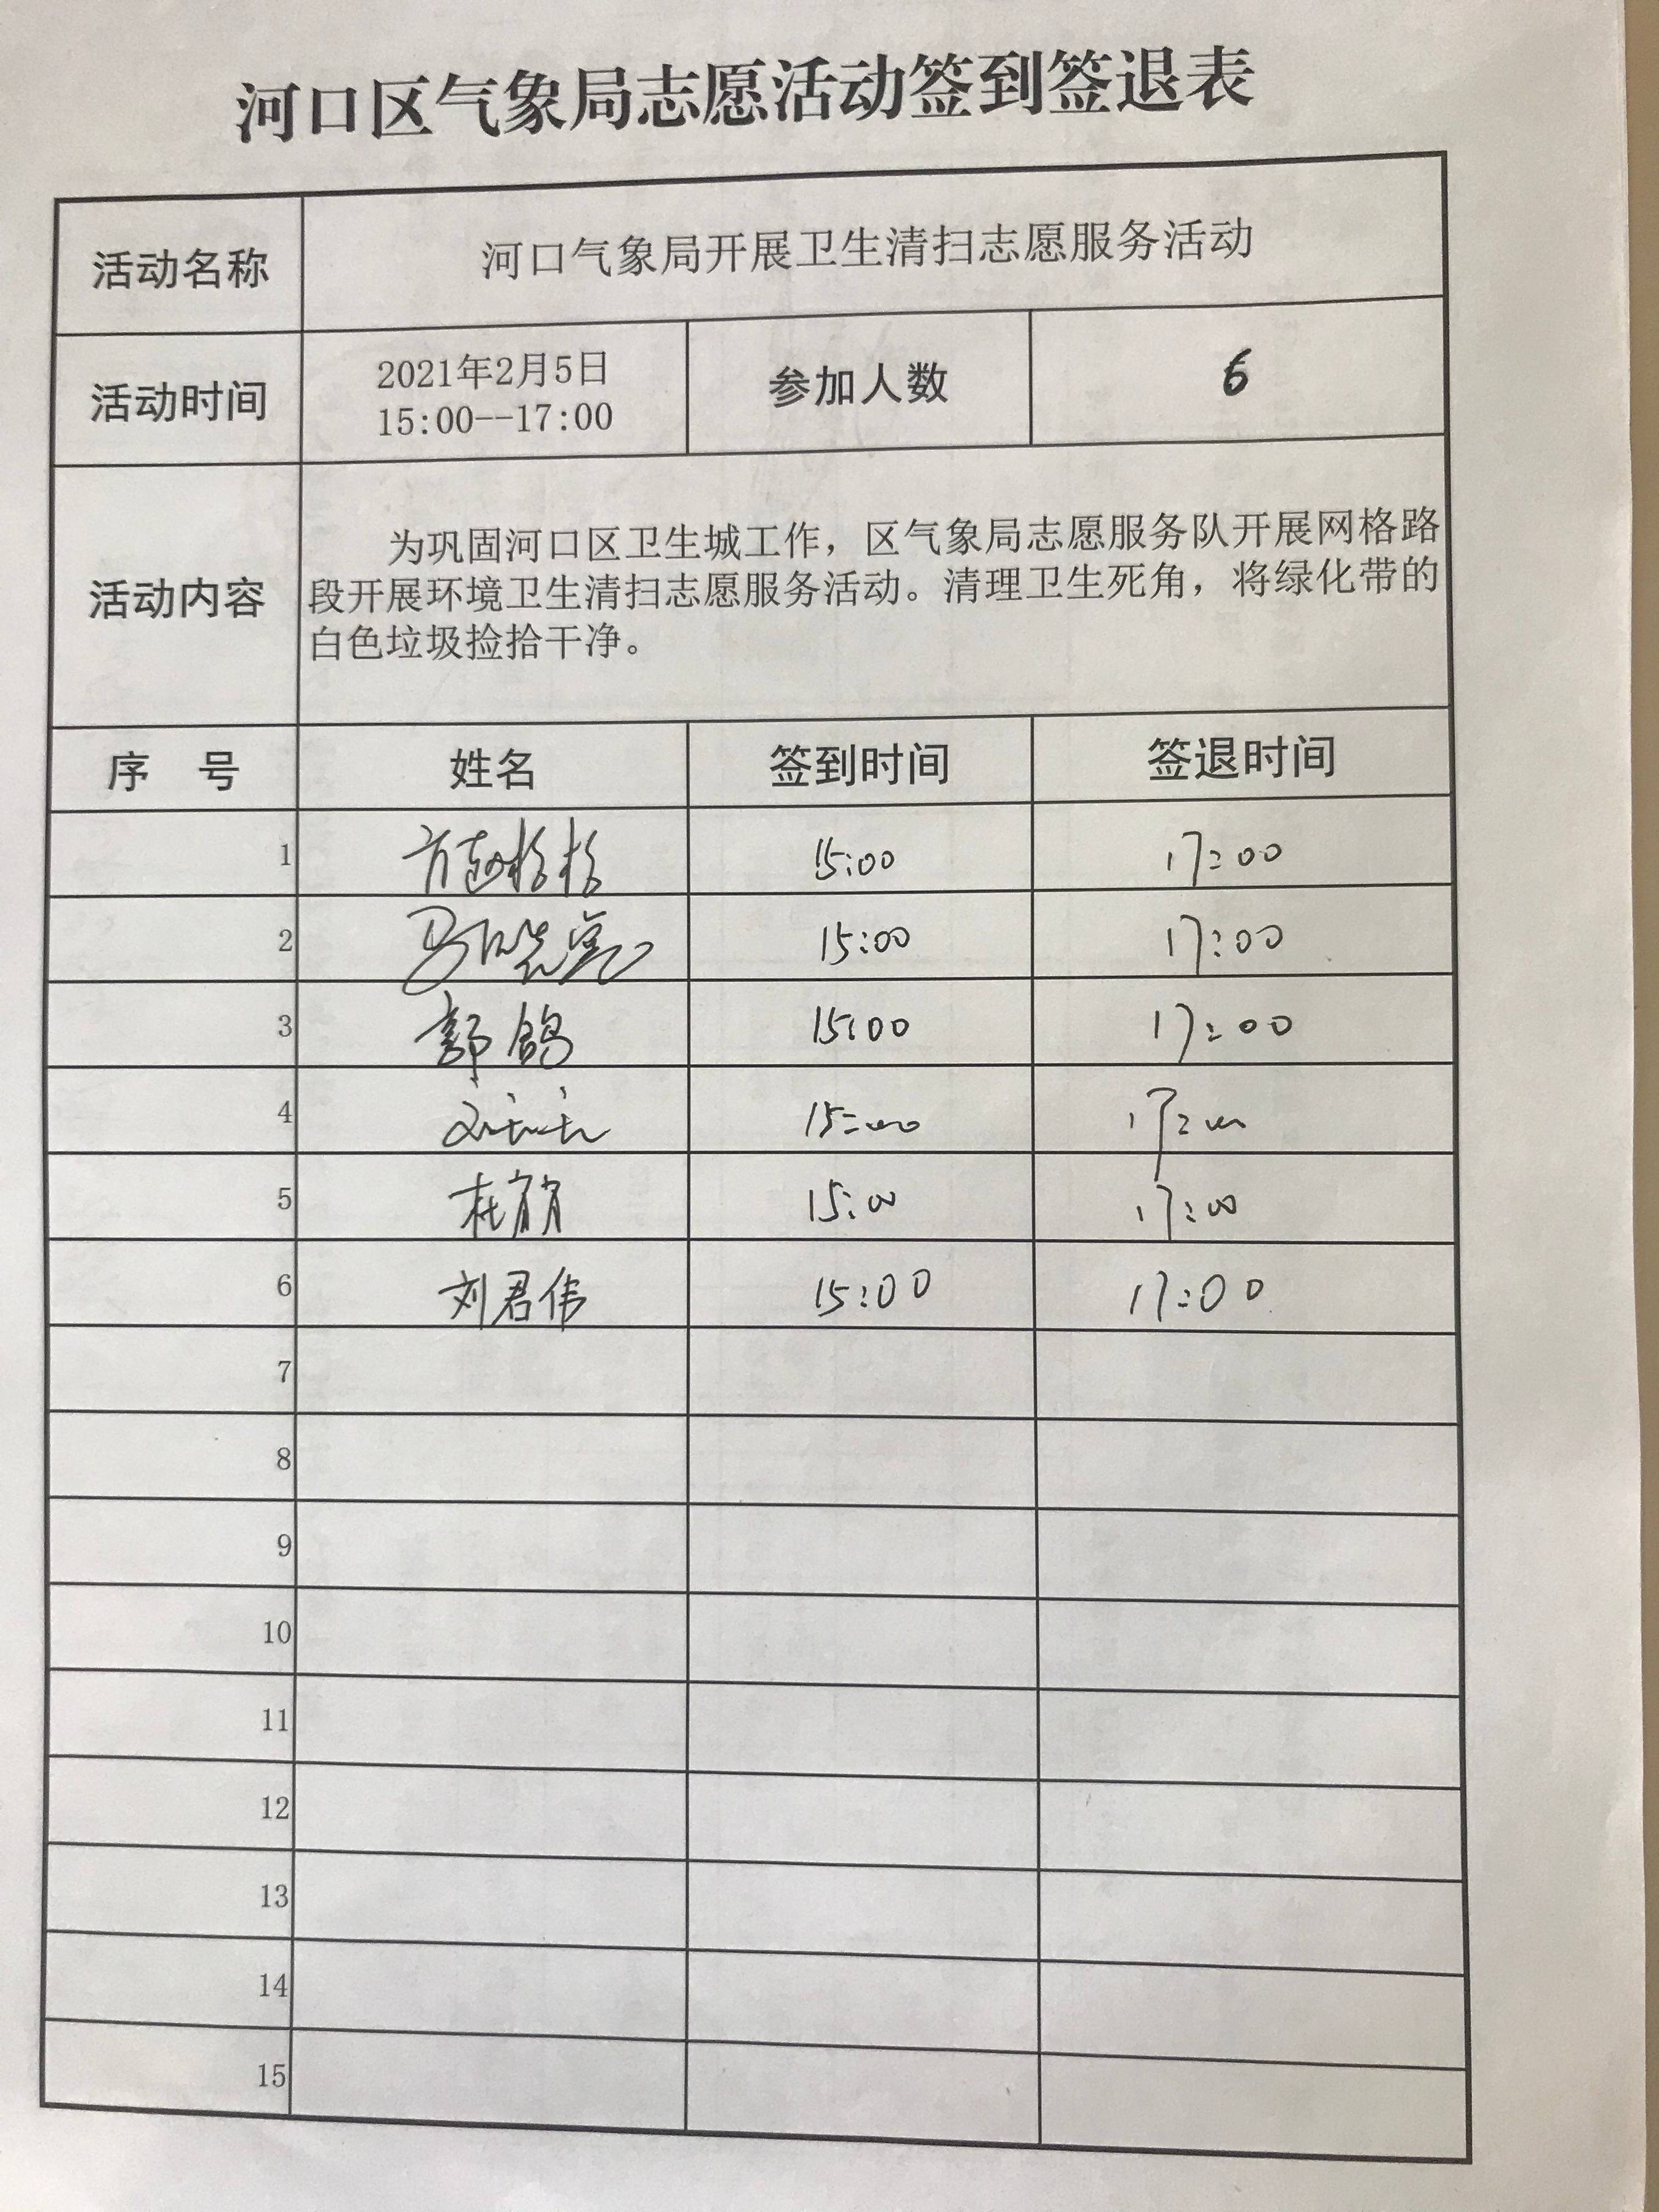 河口区气象局志愿活动签到签退表
活动名称 河口气象局开展卫生清扫志愿服务活动
活动时间 2021年2月5日
15:00--17:00 参加人数 6
活动内容 为巩固河口区卫生城工作，区气象局志愿服务队开展网格路
段开展环境卫生清扫志愿服务活动。清理卫生死角，将绿化带的
白色垃圾捡拾干净。
序 号 姓名 签到时间 签退时间
1 15:00 17:00
2 15:00 17:00
3 郭鸽 15:00 17:00
4 15:00 17:00
5 杜 15:00 17:00
6 刘君伟 15:00 17:00
7
8
9
10
11
12
13
14
15